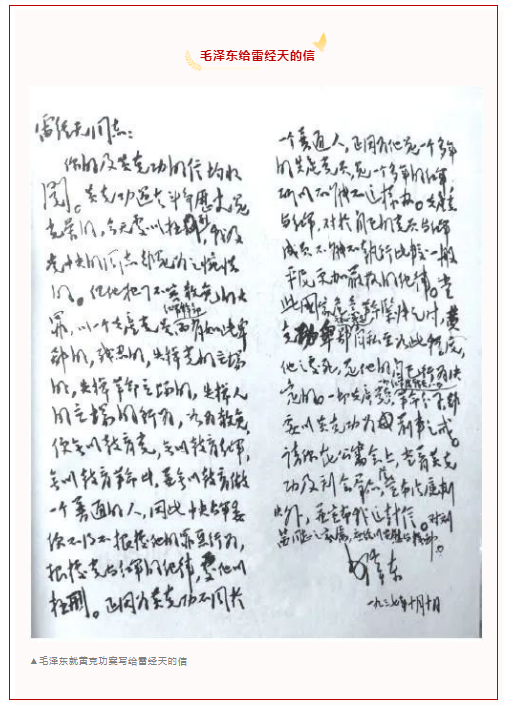 毛泽东给雷经天的信
雷经天同志：
你的及黄克功的信均收
阅。黄克功过去斗争历史是
光荣的，今天处以极刑，我及
党中央的同志都是为之惋惜
的。但他犯了不容赦免的大
罪，以一个共产党员红军干部而有如此卑
鄙的，残忍的，失掉党的立场
的，失掉革命立场的，失掉人
的立场的行为，如为赦免，
便无以教育党，无以教育红军，
无以教育革命者，并无以教育做
一个普通的人，因此中央与军委
便不得不根据他的罪恶行为，
根据党与红军的纪律，处他以
极刑。正因为黄克功不同于
一个普通人，正因为他是一个多年
的共产党员，是一个多年的红军，
所以不能不这样办。共产党
与红军，对于自己的党员与红军
成员不能不执行比较一般
平民更加严格的纪律。当
此国家危急革命紧张之时，黄
克功卑鄙无耻残忍自私至如此程度，
他之处死，是他的自己行为决
定的。一切共产党员，一切红军指战员，一切革命分子，都
要以黄克功为前车之戒。
请你在公审会上，当着黄克
功及到会群众，除宣布法庭判
决外，并宣布我这封信。对刘
茜同志之家属，应给以安慰与抚恤。
毛泽东
一九三七年十月十日
▲毛泽东就黄克功案写给雷经天的信